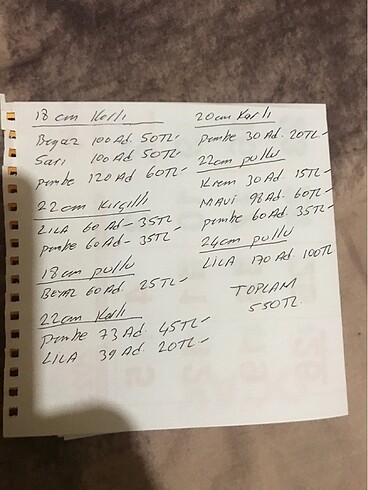 18 cm Karlı
Beyaz 100 Ad. 50TL-
Sarı 100 Ad. 50TL-
pembe 120 Ad. 60TL-
22cm Kırçıllı
LİLA 60 Ad- 35TL
pembe 60 Ad- 35TL-
18cm pullu
Beyaz 60 Ad. 25TL-
22cm Karlı
pembe 73 Ad. 45TL-
LİLA 39 Ad. 20TL-
20cm Karlı
pembe 30 Ad. 20TL-
22cm pullu
Krem 30 Ad. 15TL-
MAVİ 98 Ad. 60TL-
pembe 60 Ad. 35TL-
24cm pullu
LİLA 170 Ad. 100TL
TOPLAM
550TL.